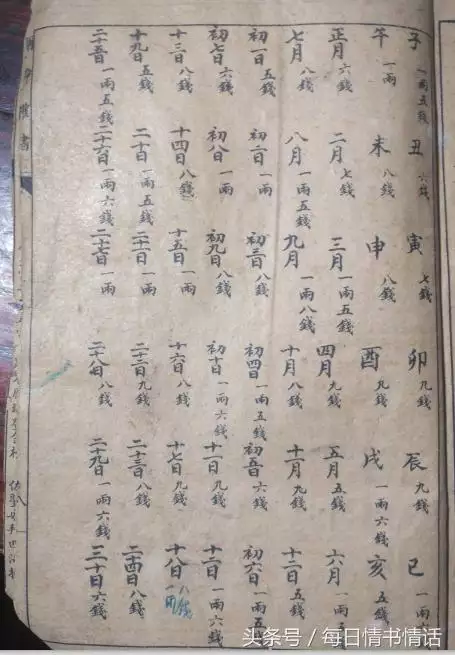 子 一兩五錢 丑 六錢 寅 七錢 卯 九錢 辰 九錢 巳 一兩
午 一兩 未 八錢 申 八錢 酉 九錢 戌 一兩六錢 亥 五錢
正月 六錢 二月 七錢 三月 一兩五錢 四月 九錢 五月 五錢 六月 一兩
七月 八錢 八月 一兩五錢 九月 一兩八錢 十月 八錢 十一月 九錢 十二月 五錢
初一日 五錢 初二日 一兩 初三日 八錢 初四日 一兩五錢 初五日 六錢 初六日 一兩五錢
初七日 六錢 初八日 一兩 初九日 八錢 初十日 一兩六錢 十一日 九錢 十二日 一兩六錢
十三日 八錢 十四日 八錢 十五日 一兩 十六日 八錢 十七日 九錢 十八日 一兩八錢
十九日 五錢 二十日 一兩五錢 二十一日 一兩 二十二日 九錢 二十三日 八錢 二十四日 八錢
二十五日 一兩五錢 二十六日 一兩六錢 二十七日 一兩 二十八日 八錢 二十九日 一兩六錢 三十日 六錢
头条号 / 每日情书情话